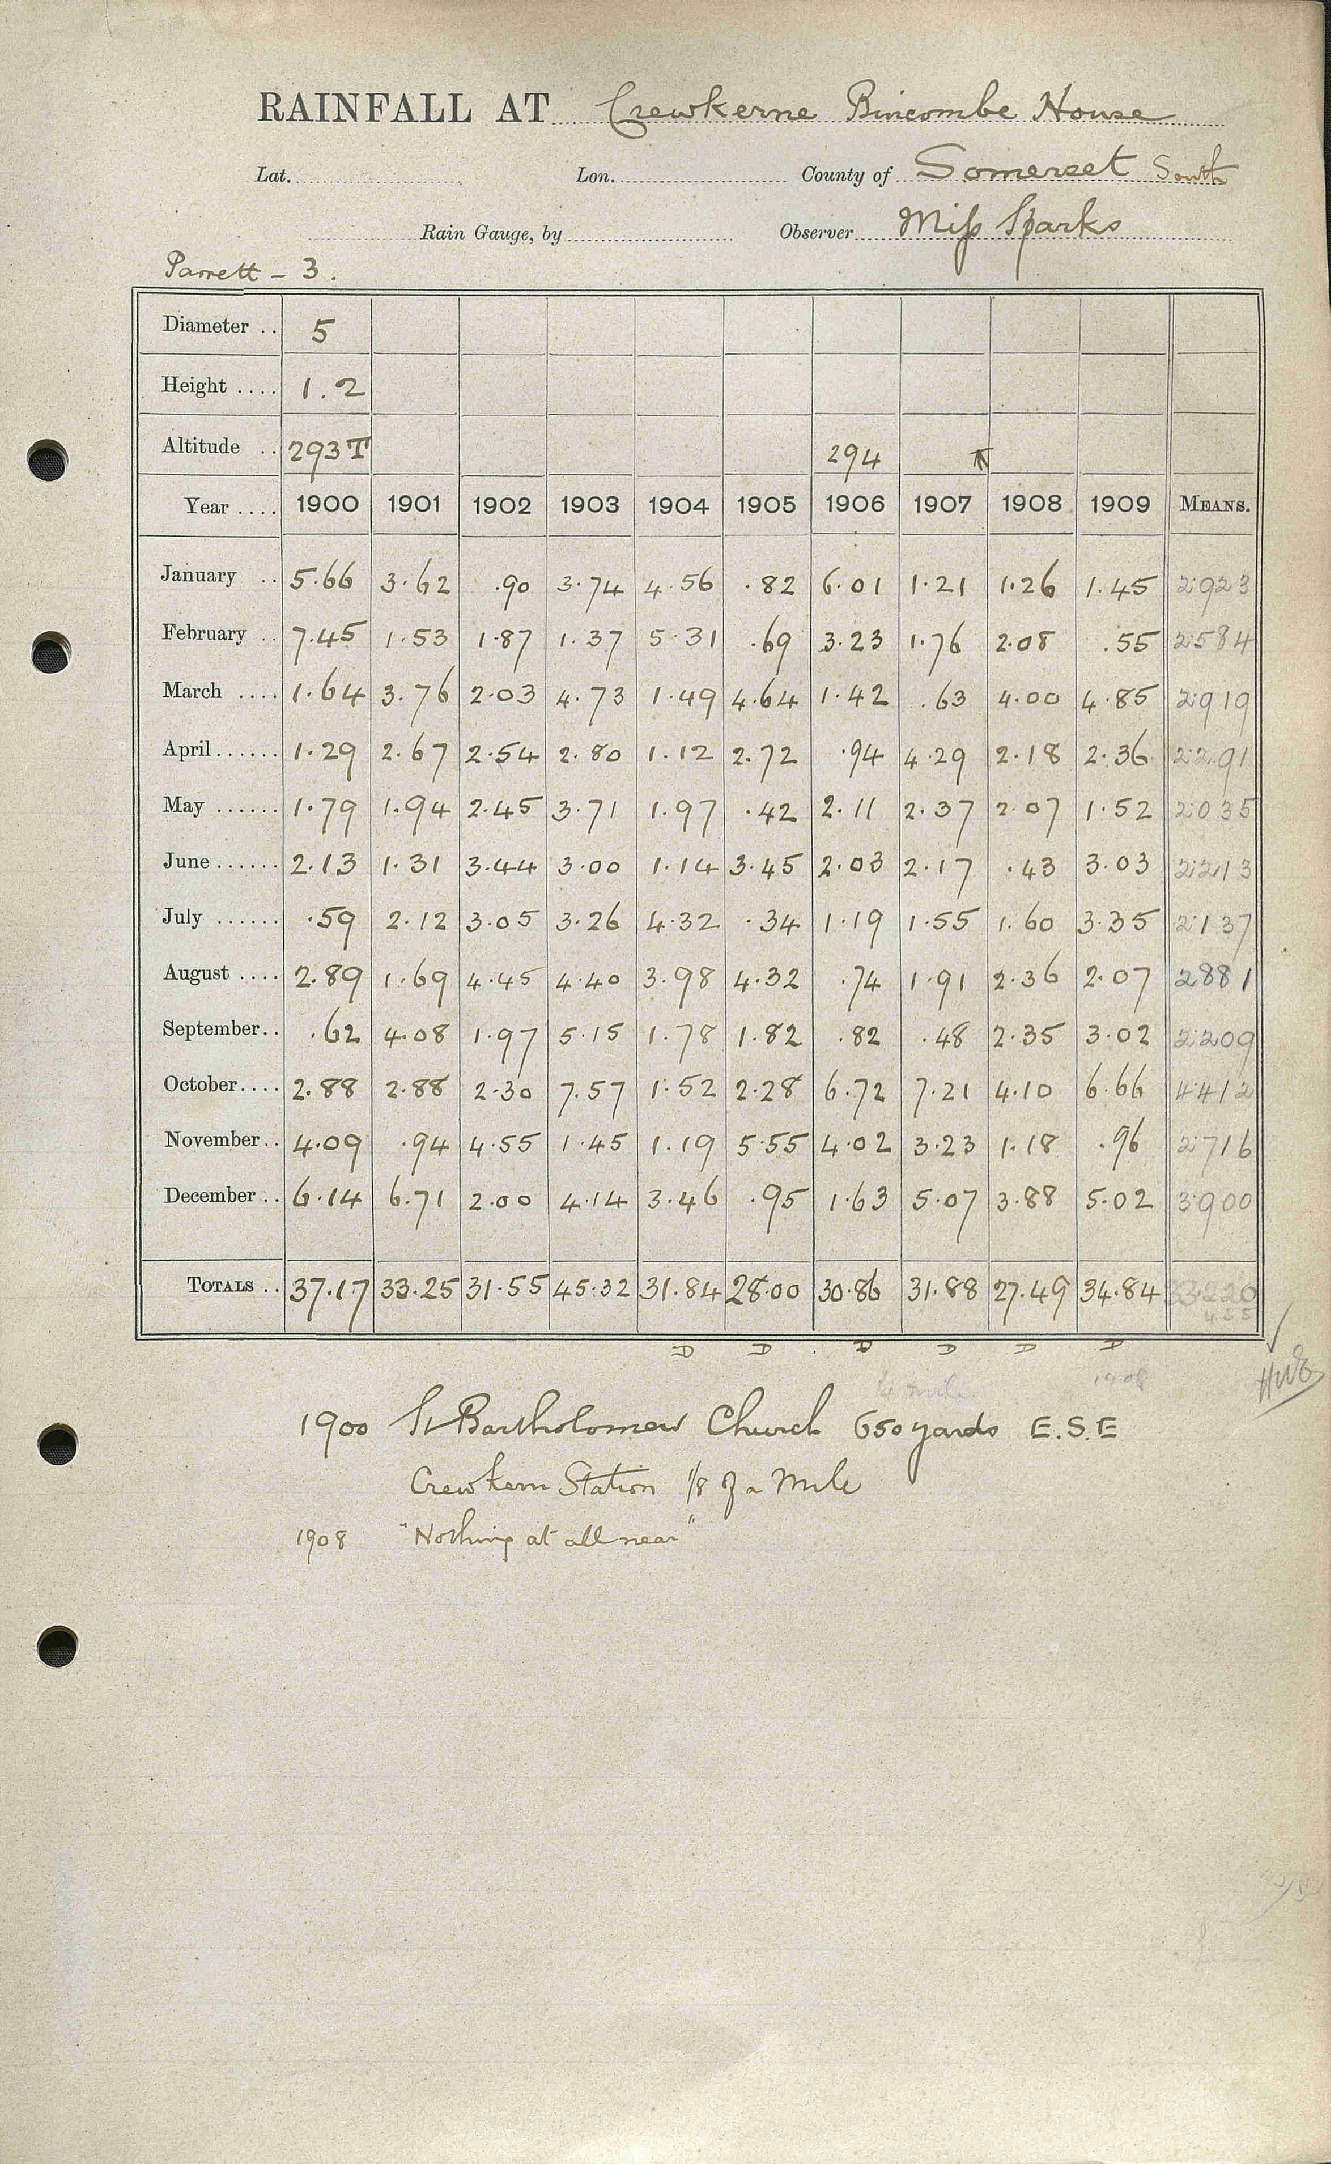 RAINFALL AT Crewkerne Bincombe House
Lat. Lon. County of Somerset South
Rain Gauge, by Observer Miss Sparks
Parrett - 3.
Diameter .. 5
Height .... 1.2
Altitude .. 293T 294 T
Year .... 1900 1901 1902 1903 1904 1905 1906 1907 1908 1909 MEANS.
January .. 5.66 3.62 .90 3.74 4.56 .82 6.01 1.21 1.26 1.45 2.923
February .. 7.45 1.53 1.87 1.37 5.31 .69 3.23 1.76 2.08 .55 2.584
March .... 1.64 3.76 2.03 4.73 1.49 4.64 1.42 .63 4.00 4.85 2.919
April ...... 1.29 2.67 2.54 2.80 1.12 2.72 .94 4.29 2.18 2.36 2.291
May ...... 1.79 1.94 2.45 3.71 1.97 .42 2.11 2.37 2.07 1.52 2.035
June ...... 2.13 1.31 3.44 3.00 1.14 3.45 2.03 2.17 .43 3.03 2.213
July ...... .59 2.12 3.05 3.26 4.32 .34 1.19 1.55 1.60 3.35 2.137
August .... 2.89 1.69 4.45 4.40 3.98 4.32 .74 1.91 2.36 2.07 2.881
September .. .62 4.08 1.97 5.15 1.78 1.82 .82 .48 2.35 3.02 2.209
October .... 2.88 2.88 2.30 7.57 1.52 2.28 6.72 7.21 4.10 6.66 4.412
November .. 4.09 .94 4.55 1.45 1.19 5.55 4.02 3.23 1.18 .96 2.716
December .. 6.14 6.71 2.00 4.14 3.46 .95 1.63 5.07 3.88 5.02 3.900
TOTALS .. 37.17 33.25 31.55 45.32 31.84 28.00 30.86 31.88 27.49 34.84
D D D D D D
1908
1900 St Bartholomew Church 650 yards E.S.E
Crewkern Station 1/8 of a Mile
1908 "Nothing at all near"